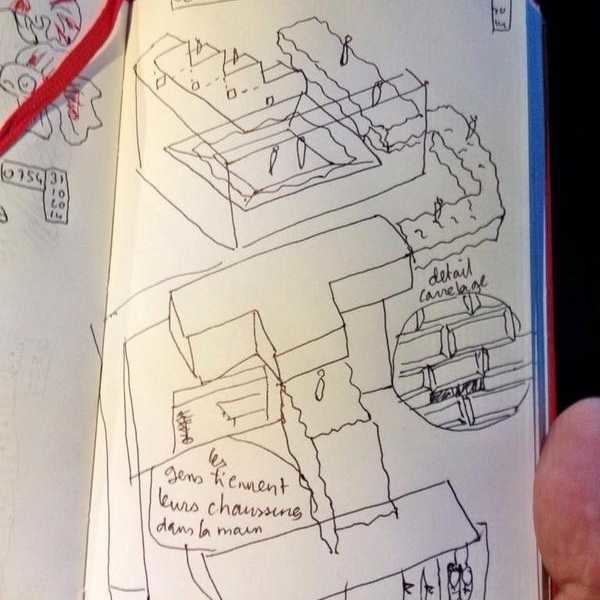 0754
31
10
20
détail
carrelage
les
gens tiennent
leurs chaussures
dans la main